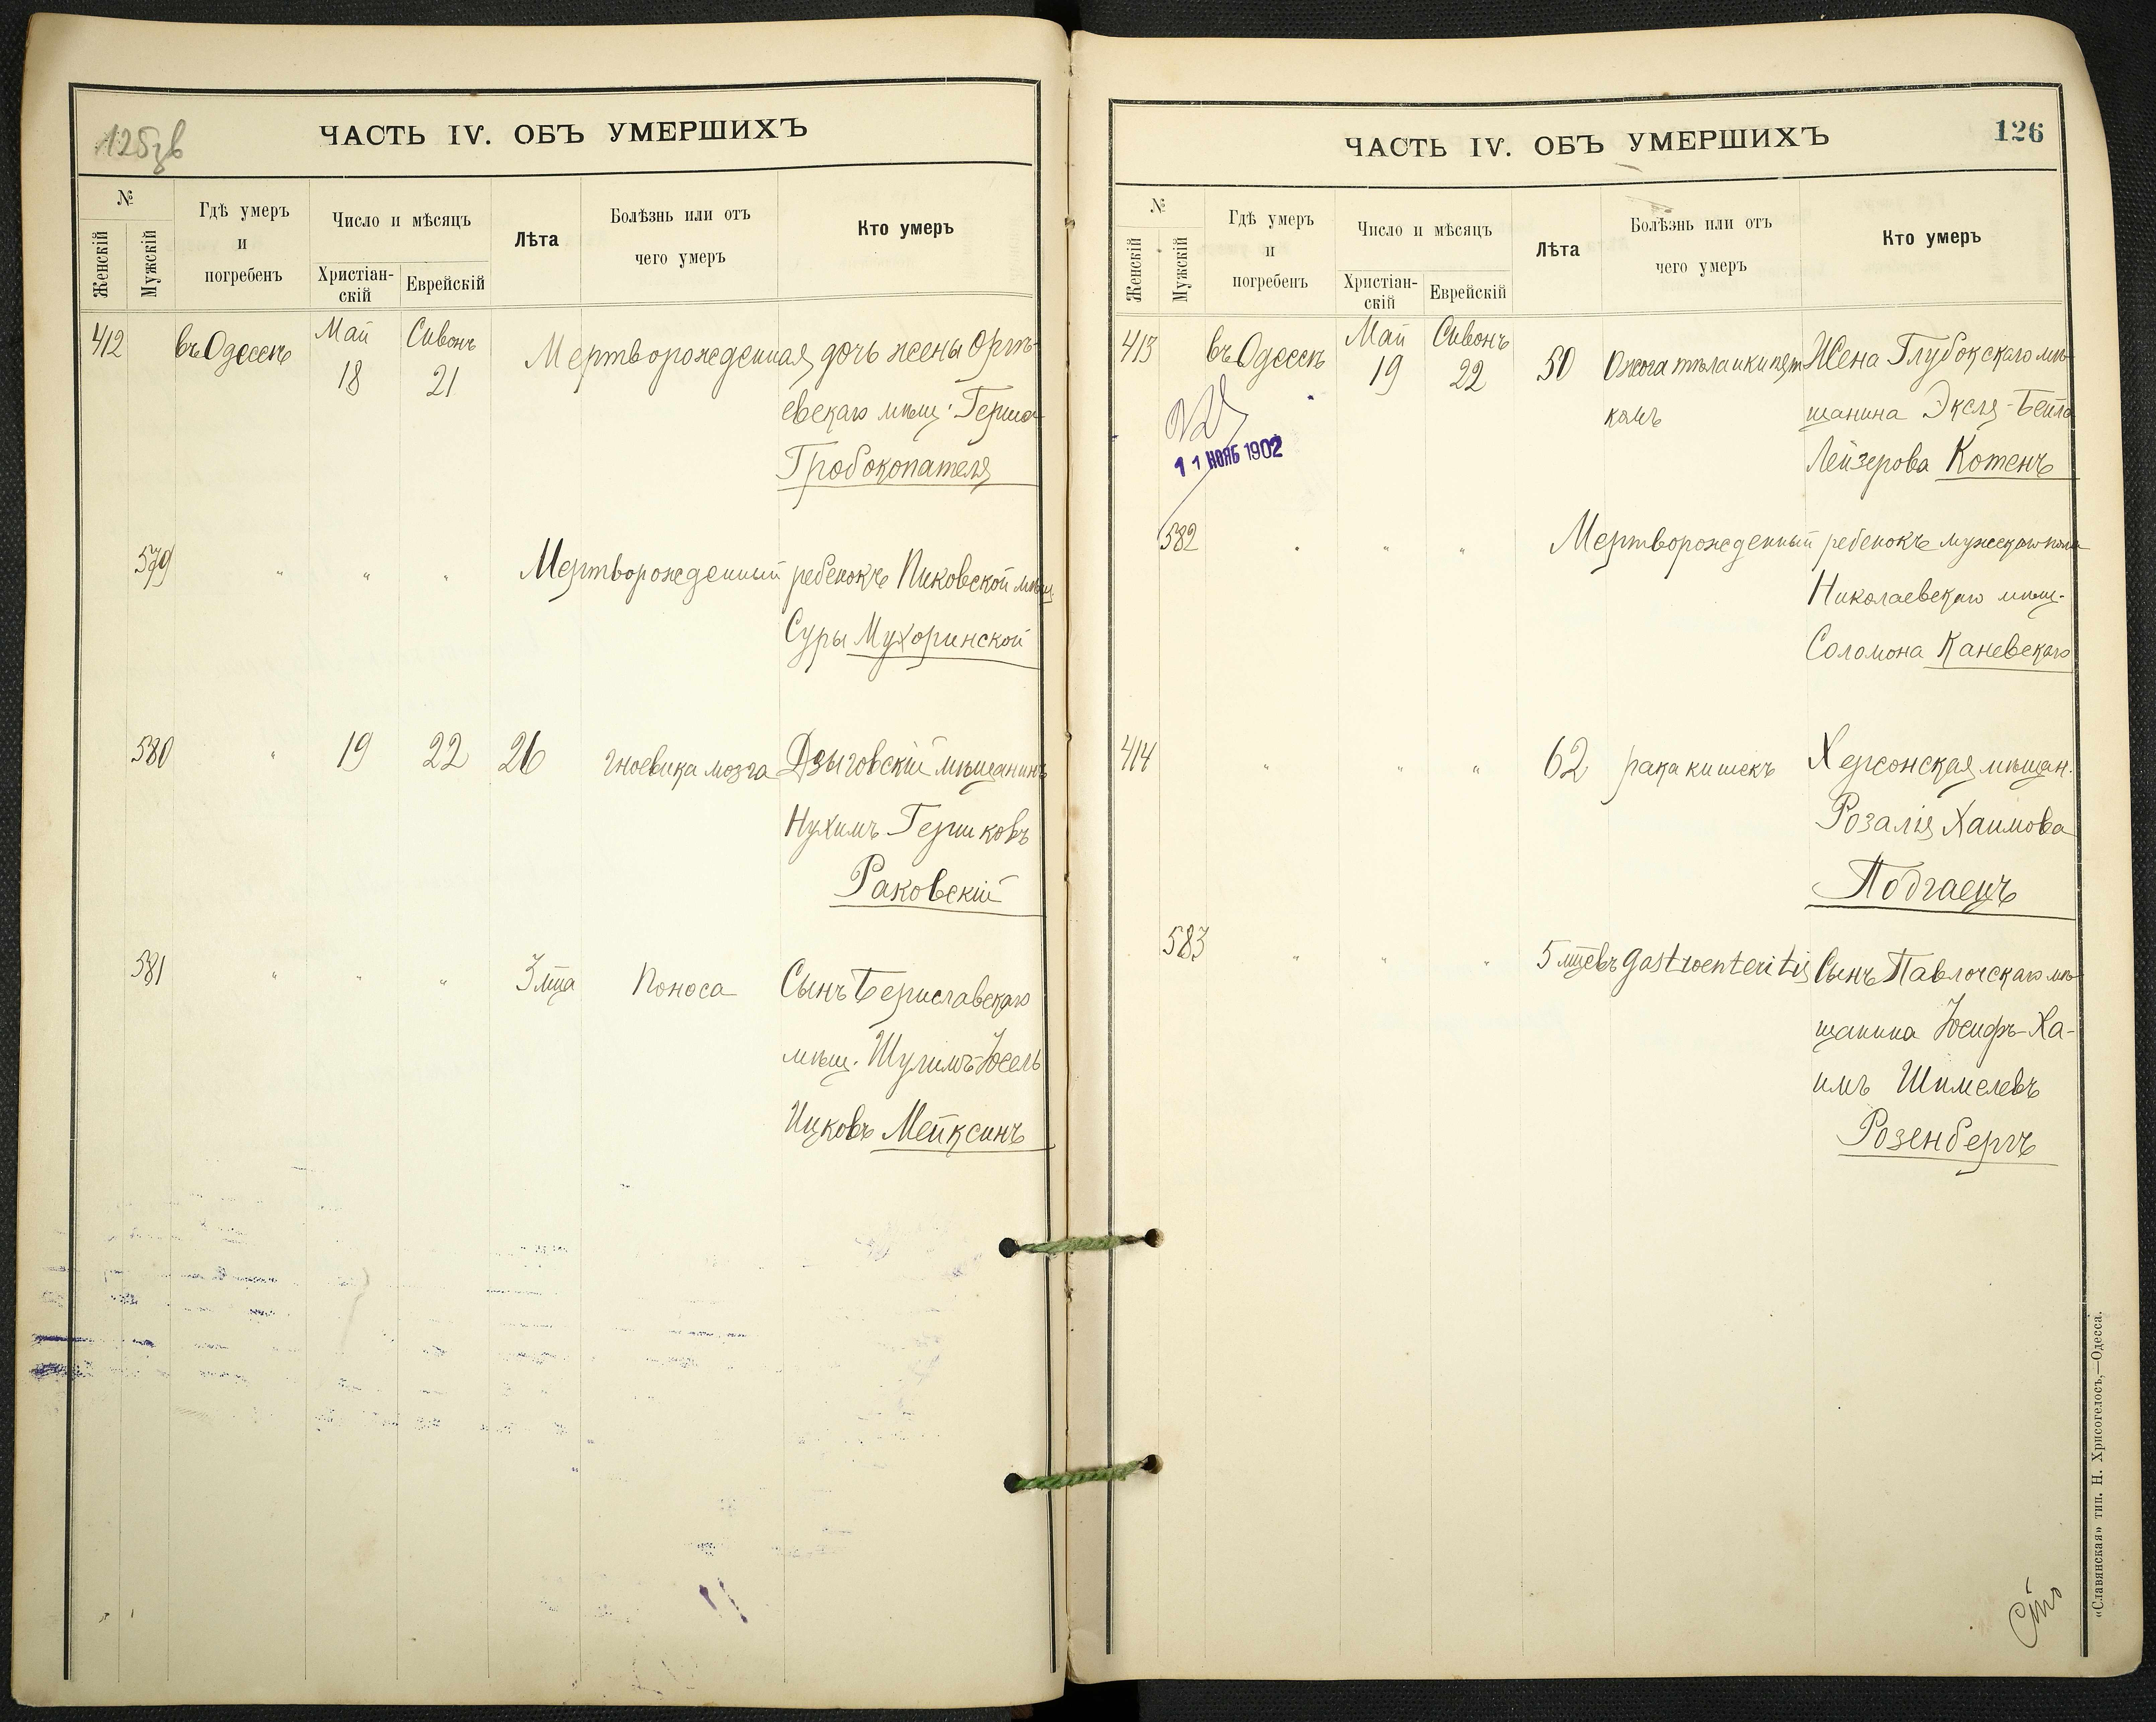 125зв
ЧАСТЬ IV. ОБЪ УМЕРШИХЪ
№
Женскій
Мужскій
Гдѣ умеръ
и
погребенъ
Число и мѣсяцъ
Христіан-
скій
Еврейскій
Лѣта
Болѣзнь или отъ
чего умеръ
Кто умеръ
412 въ Одессѣ Май Сивонъ Мертворожденная дочь жены Оргѣ-
18 21 евскаго мѣщ. Герша
Гробокопателя
579 " " " Мертворожденный ребенокъ Пиковской мѣщ
Суры Мухоринской
580 " 19 22 26 гноевика мозга Дзыговскій мѣщанинъ
Нухимъ Гершковъ
Раковскій
581 " " " 3 мца Поноса Сынъ Бериславскаго
мѣщ. Шулимъ-Іосель
Ицковъ Мейксинъ
ЧАСТЬ IV. ОБЪ УМЕРШИХЪ
126
№
Женскій
Мужскій
Гдѣ умеръ
и
погребенъ
Число и мѣсяцъ
Христіан-
скій
Еврейскій
Лѣта
Болѣзнь или отъ
чего умеръ
Кто умеръ
413 въ Одессѣ Май Сивонъ 50 Ожога тѣла кипят Жена Глубокскаго мѣ-
19 22 комъ щанина Эксля-Бейла
Лейзерова Котенъ
11 НОЯБ 1902
582 " " " Мертворожденный ребенокъ мужскаго пола
Николаевскаго мѣщ.
Соломона Каневскаго
414 " " " 62 рака кишекъ Херсонская мѣщан.
Розалія Хаимова
Подгаецъ
583 " " " 5 мцевъ gastroenteritis Сынъ Павлочскаго мѣ-
щанина Іосифъ-Ха-
имъ Шимелевъ
Розенбергъ
«Славянская» тип. Н. Хрисогелосъ,—Одесса.